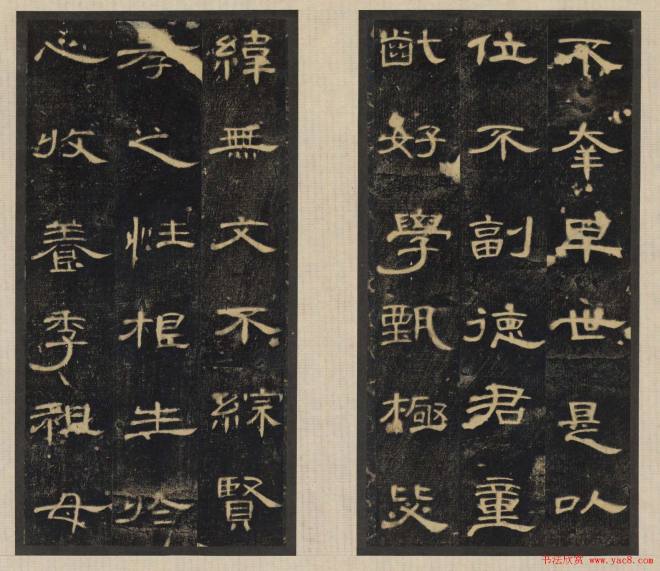 不幸早世是以
位不副德君童
齔好學甄極毖
緯無文不綜賢
孝之性根生於
心收養季祖母
书法欣赏 www.yac8.com